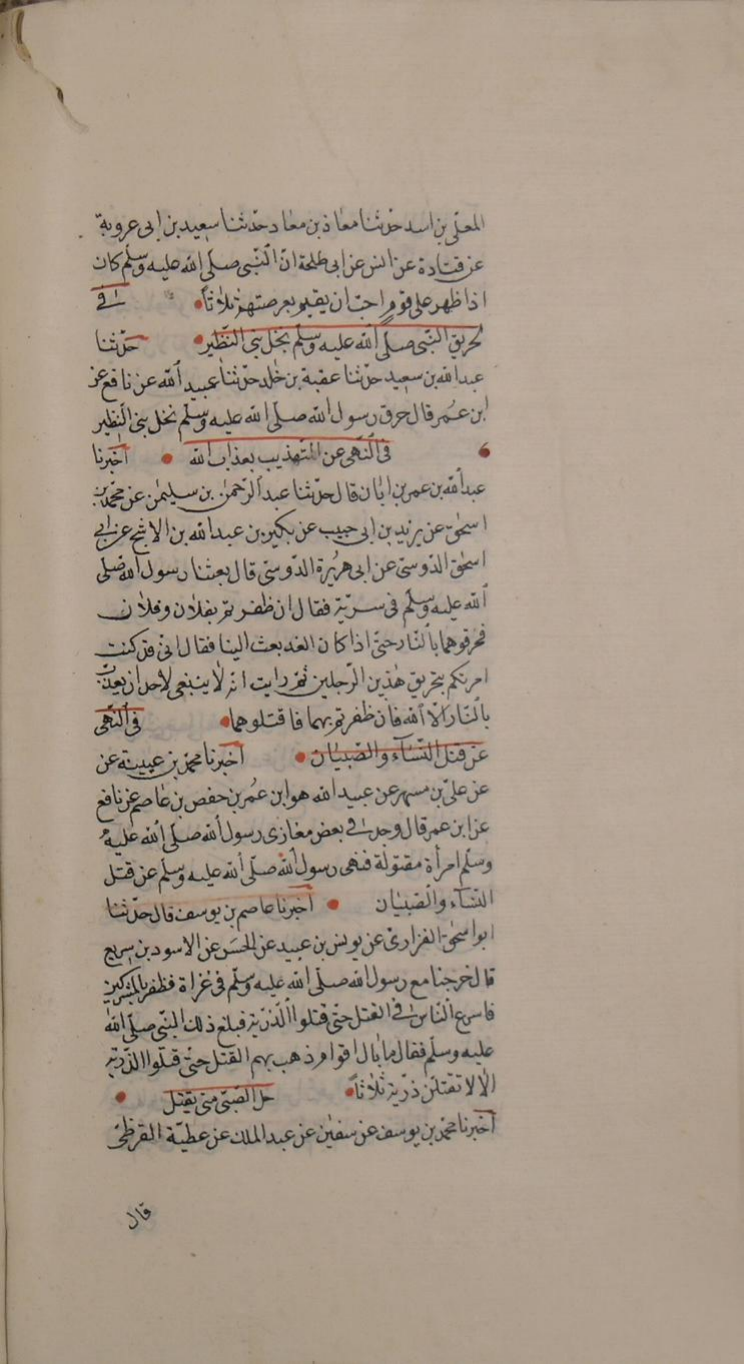 المعلّى بن اسد حدّثنا معاذ بن معاد حدّثنا سعيد بن ابى عروبة
عن قتادة عن انس عن ابى طلحة انّ النّبى صلّى الله عليه وسلّم كان
اذا ظهر على قوم احبّ ان يقيم بعرصتهم ثلاثاً فى
تحريق النّبى صلّى الله عليه وسلّم نخل بنى النّظير حدّثنا
عبد الله بن سعيد حدّثنا عقبة بن خلد حدّثنا عبيد الله عن نافع عن
ابن عمر قال حرق رسول الله صلّى الله عليه وسلّم نخل بنى النّظير
فى النّهى عن التهذيب بعذاب الله اخبرنا
عبد الله بن عمر بن ابان قال حدّثنا عبد الرّحمن بن سليمن عن محمّد بن
اسحق عن يزيد بن ابى حبيب عن بكير بن عبد الله بن الاشج عن ابى
اسحق الدّوسىّ عن ابى هريرة الدّوسىّ قال بعثنا رسول الله صلى
الله عليه وسلّم فى سريّة فقال ان ظفرتم بفلان وفلان
فحرقوهما بالنّار حتّى اذا كان الغد بعث الينا فقال انّى قد كنت
امرتكم بتحريق هذين الرّجلين ثم رايت انّه لا ينبغى لاحد ان يعذّب
بالنّار الّا الله فان ظفرتم بهما فاقتلوهما فى النّهى
عن قتل النّسآء والصّبيان اخبرنا محمّد بن عيينة عن
عن علىّ بن مسهر عن عبيد الله هو ابن عمر بن حفص بن عاصم عن نافع
عن ابن عمر قال وجدت فى بعض مغازى رسول الله صلّى الله عليه
وسلّم امرأة مقتولة فنهى رسول الله صلّى الله عليه وسلّم عن قتل
النّسآء والصّبيان اخبرنا عاصم بن يوسف قال حدّثنا
ابو اسحق الفزارى عن يونس بن عبيد عن الحسن عن الاسود بن سريع
قال خرجنا مع رسول الله صلّى الله عليه وسلّم فى غزاة فظفر بالمشركين
فاسرع النّاس فى القتل حتى قتلوا الّذرّية فبلغ ذلك النبّى صلّى الله
عليه وسلّم فقال ما بال اقوام ذهب بهم القتل حتّى قتلوا الذّرّية
الا لا تقتلن ذرّية ثلاثاً حل الصّبى متى يقتل
اخبرنا محمّد بن يوسف عن سفين عن عبد الملك عن عطيّة القرظىّ
قال